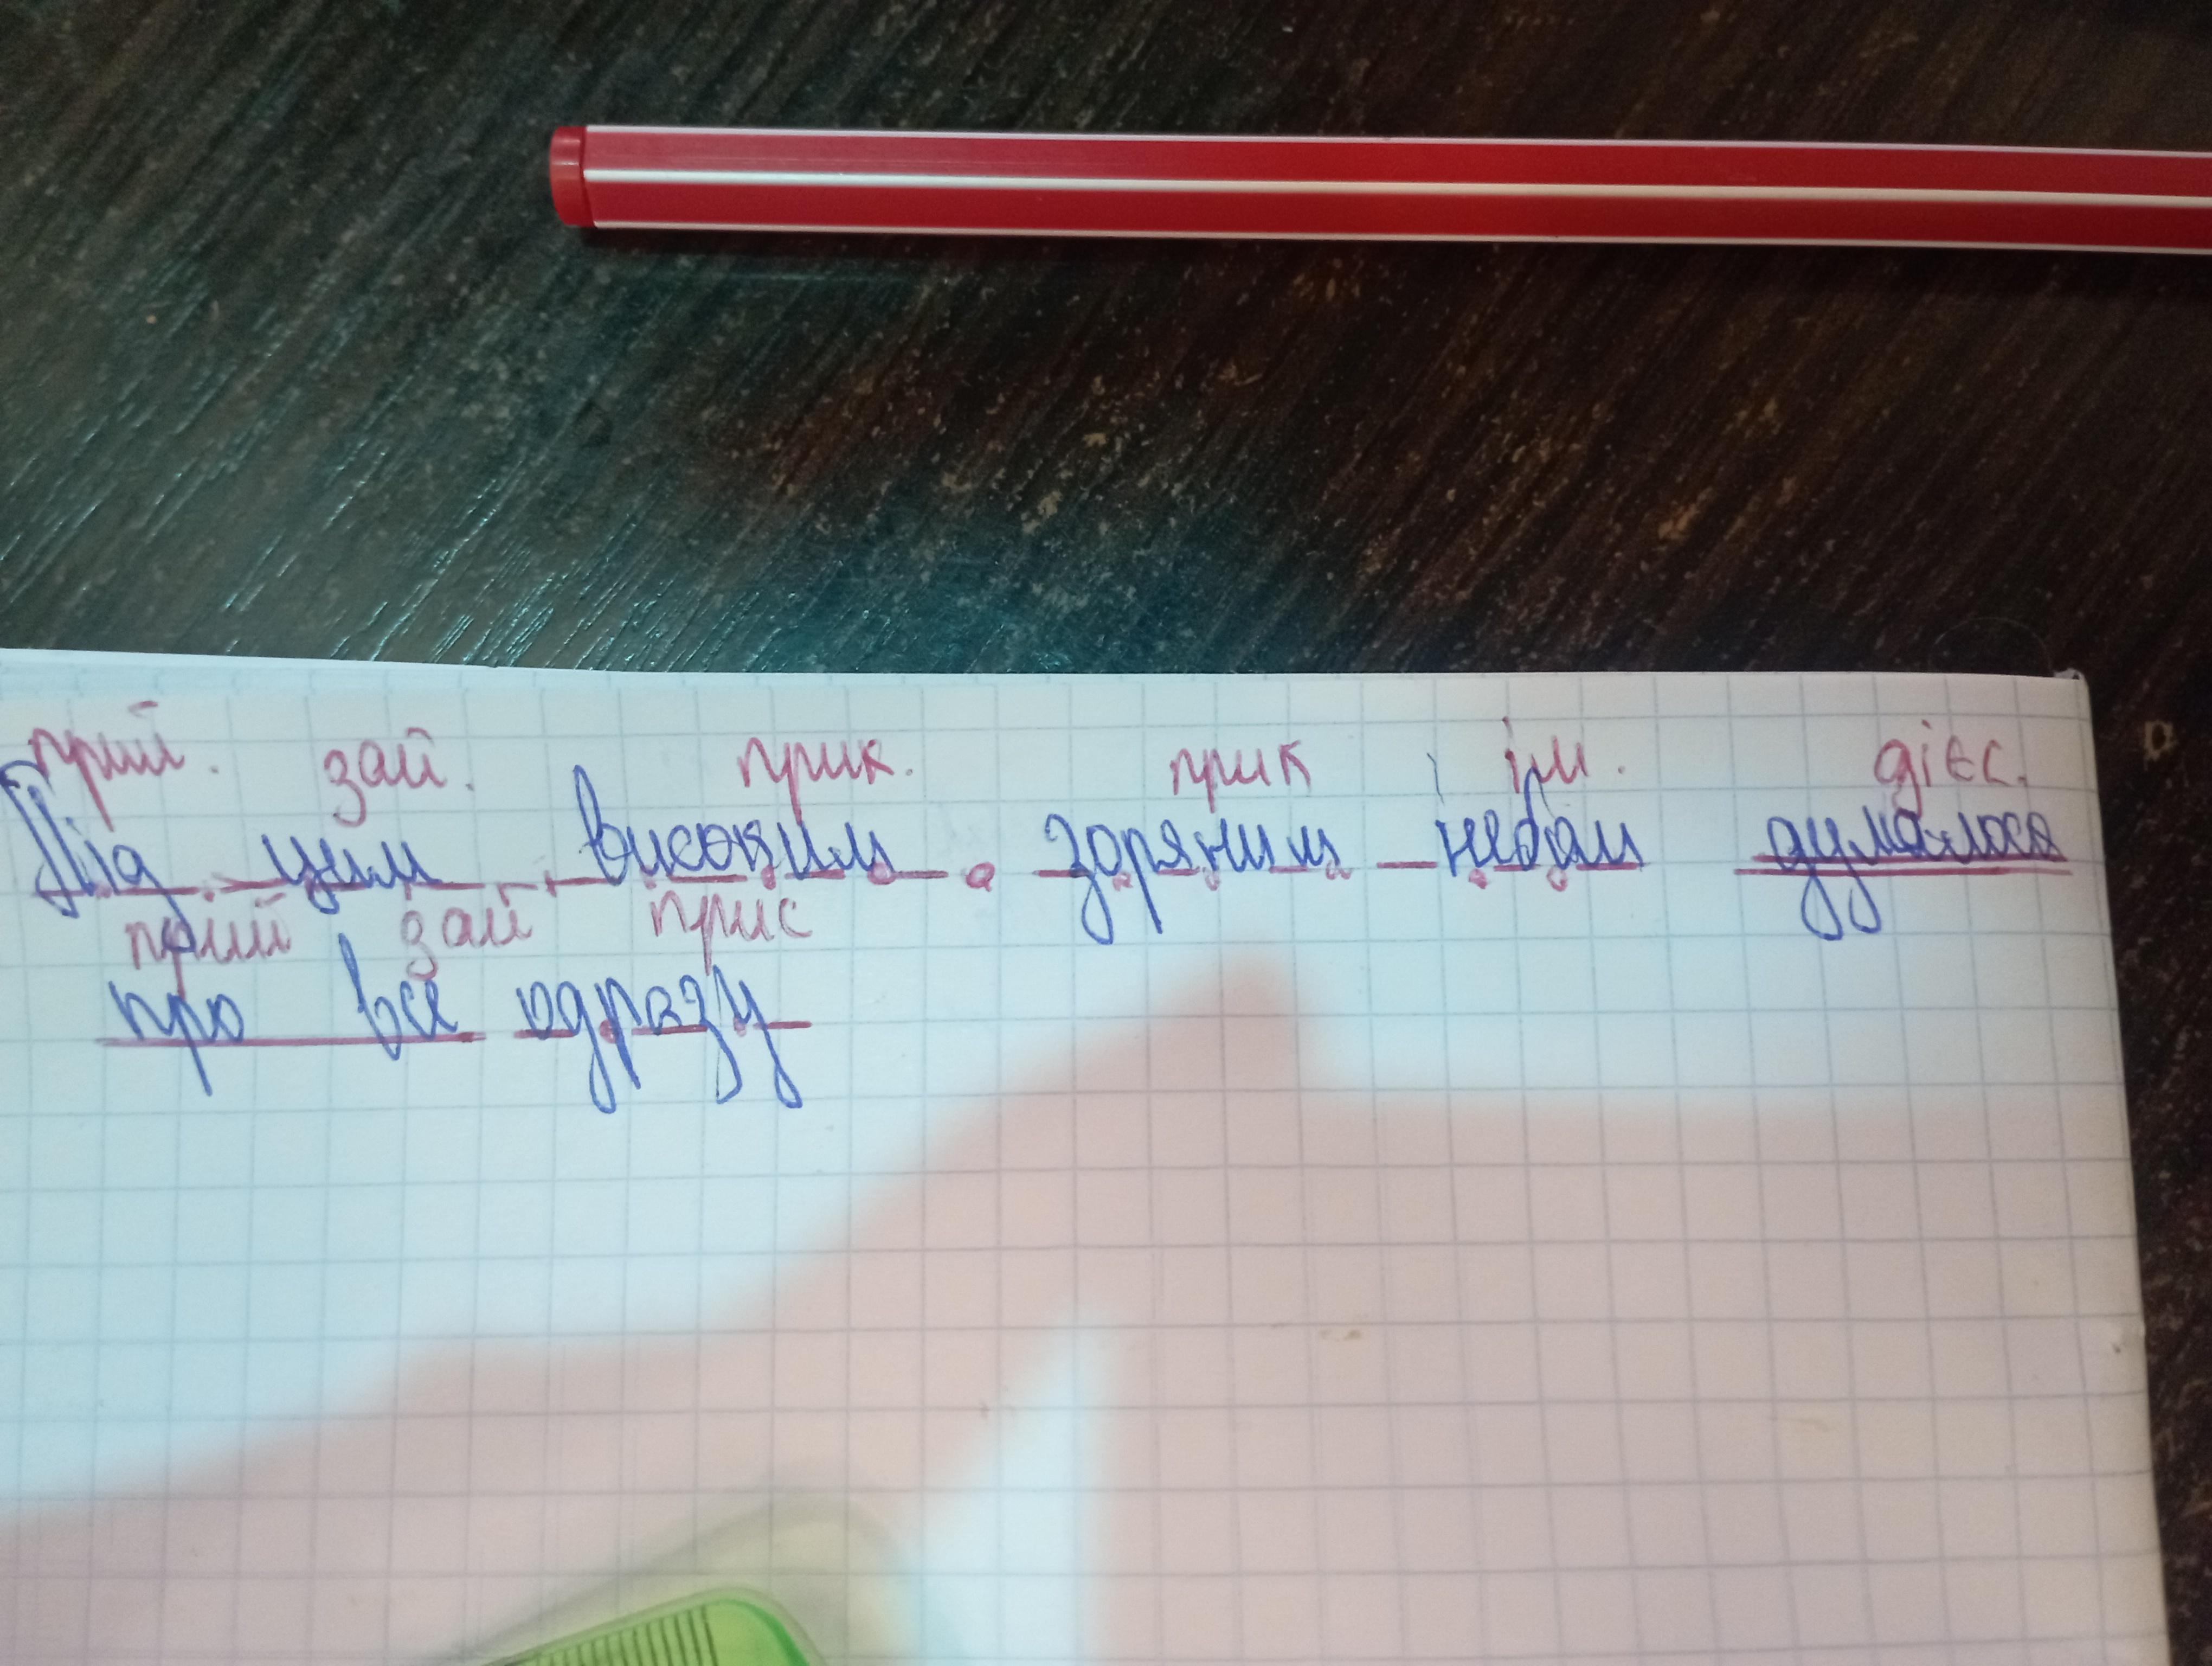 прий. зай. прик. прик ім. дієс.
Під цим високим зоряним небом думалося
прий зай прис
про все одразу